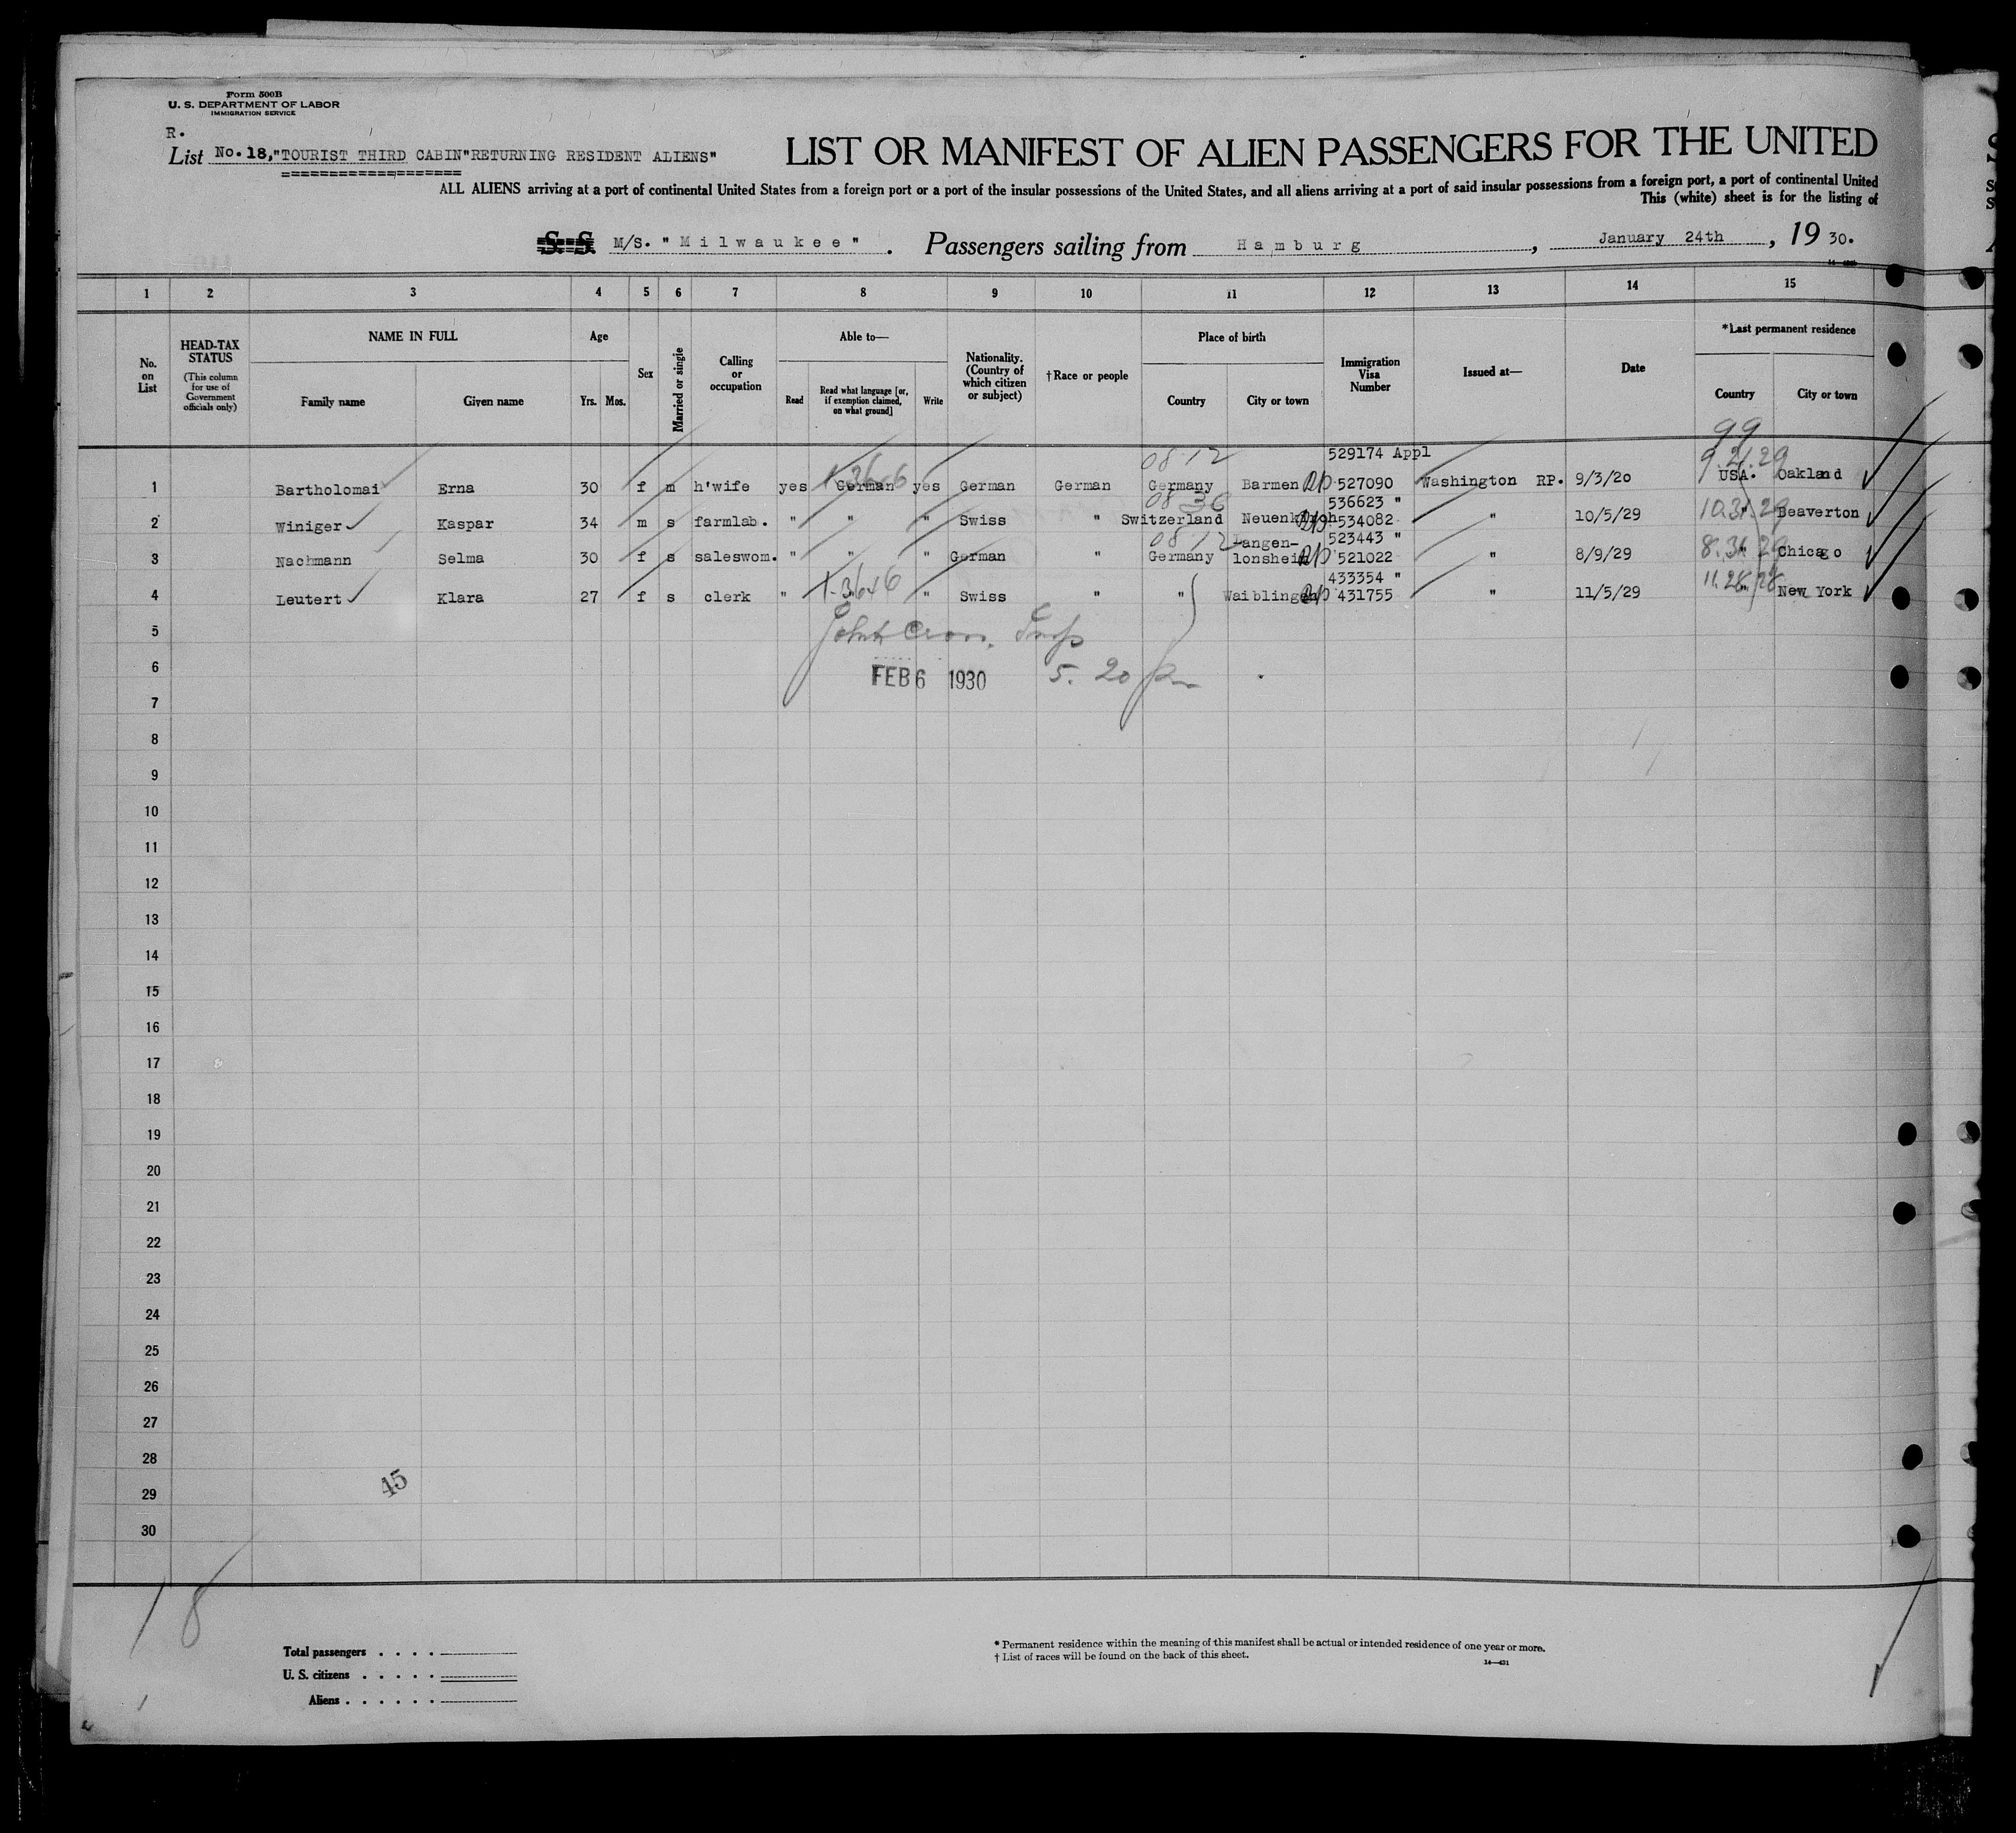 Form 500B
U. S. DEPARTMENT OF LABOR
IMMIGRATION SERVICE
R.
List No. 18, "TOURIST THIRD CABIN" RETURNING RESIDENT ALIENS"
LIST OR MANIFEST OF ALIEN PASSENGERS FOR THE UNITED
ALL ALIENS arriving at a port of continental United States from a foreign port or a port of the insular possessions of the United States, and all aliens arriving at a port of said insular possessions from a foreign port, a port of continental United
This (white) sheet is for the listing of
S. S. M/S. "Milwaukee". Passengers sailing from Hamburg, January 24th, 1930.
1 2 3 4 5 6 7 8 9 10 11 12 13 14 15
No. on List
HEAD-TAX STATUS (This column for use of Government officials only)
NAME IN FULL
Family name Given name
Age
Yrs. Mos.
Sex
Married or single
Calling or occupation
Able to—
Read Read what language [or, if exemption claimed, on what ground] Write
Nationality. (Country of which citizen or subject)
†Race or people
Place of birth
Country City or town
Immigration Visa Number
Issued at—
Date
*Last permanent residence
Country City or town
99
08 12 529174 Appl 9.21.29
1 Bartholomai Erna 30 f m h'wife yes German yes German German Germany Barmen R/P 527090 Washington RP. 9/3/20 USA. Oakland
08 36 536623 "
2 Winiger Kaspar 34 m s farmlab. " " " Swiss " Switzerland Neuenkirch R/P 534082 " 10/5/29 10.31.29 " Beaverton
08 12 Langen- 523443 "
3 Nachmann Selma 30 f s saleswom. " " " German " Germany lonsheim R/P 521022 " 8/9/29 8.31.29 " Chicago
433354 "
4 Leutert Klara 27 f s clerk " " " Swiss " " Waiblingen R/P 431755 " 11/5/29 11.28/28 " New York
5
6 FEB 6 1930 5.20 pm
7
8
9
10
11
12
13
14
15
16
17
18
19
20
21
22
23
24
25
26
27
28
45
29
30
18
Total passengers . . . .
U. S. citizens . . . . .
Aliens . . . . . .
* Permanent residence within the meaning of this manifest shall be actual or intended residence of one year or more.
† List of races will be found on the back of this sheet.
14—431